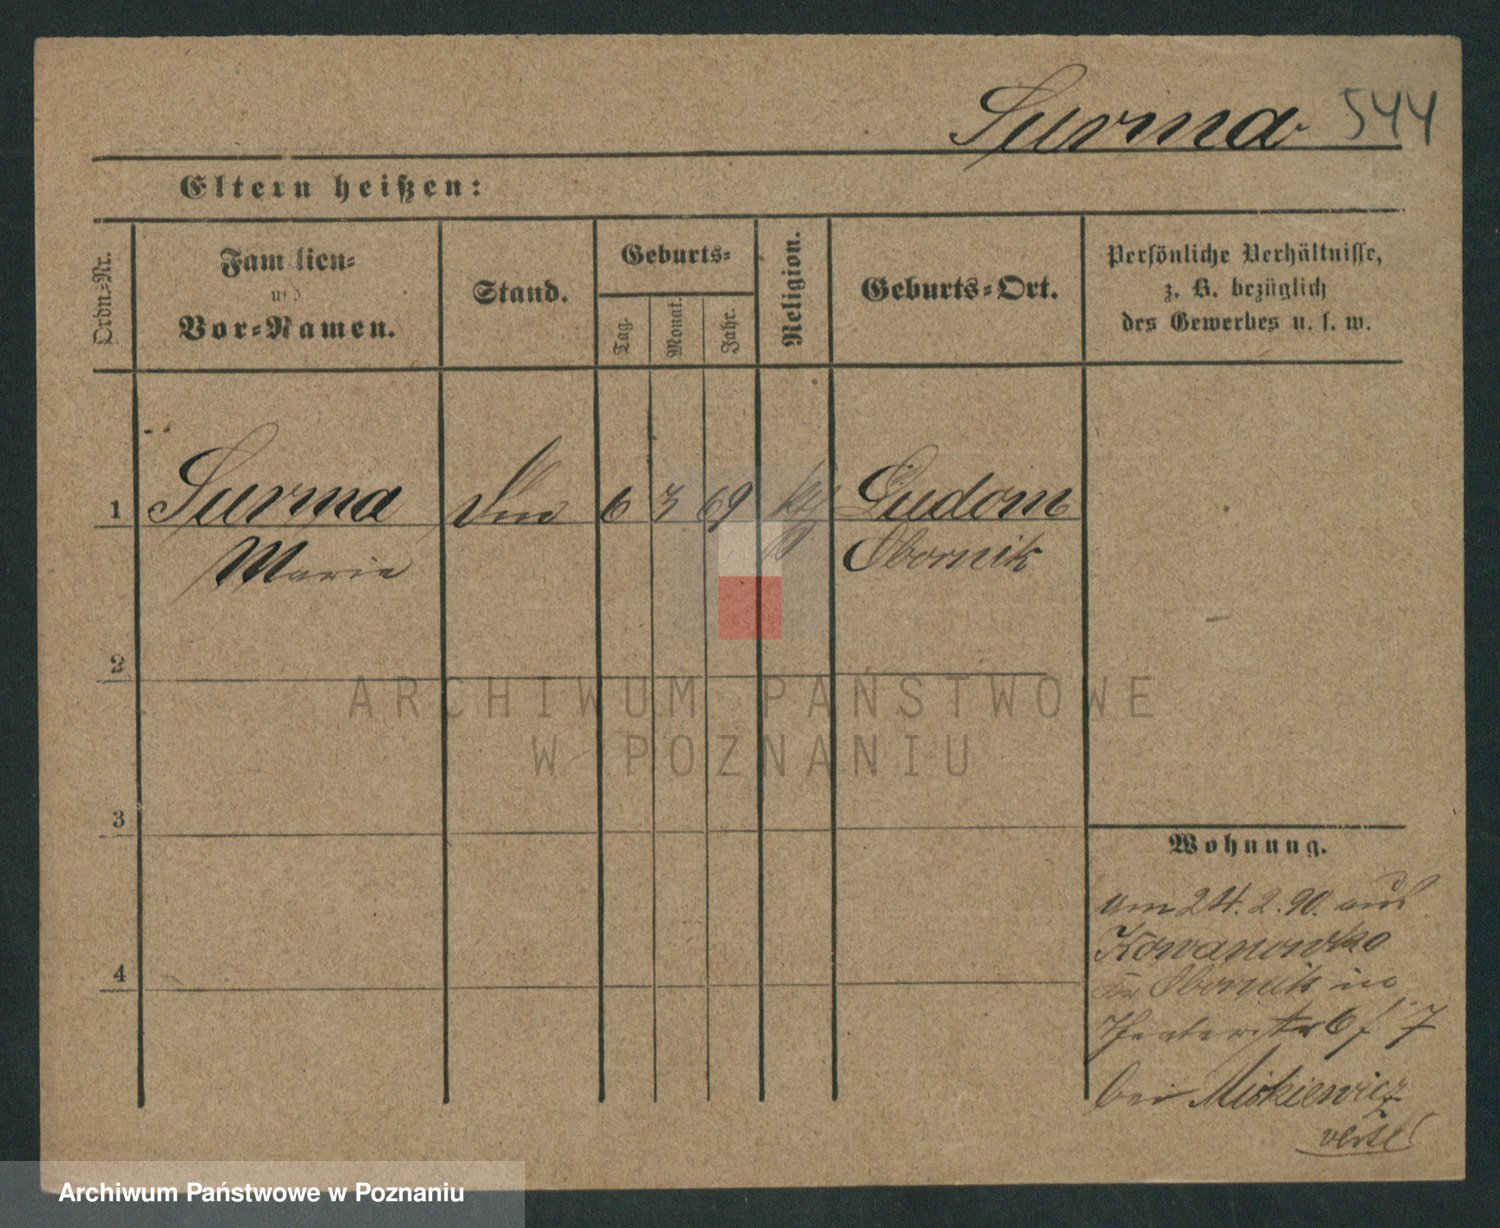 Surma 544
Eltern heißen:
Ordn.-Nr.
Familien-
und
Vor-Namen.
Stand.
Geburts-
Tag.
Monat.
Jahr.
Religion.
Geburts-Ort.
Persönliche Verhältnisse,
z. B. bezüglich
des Gewerbes u. s. w.
1 Surma 6 3 69 kth Ludom
Marie Obornik
2
3
4
Wohnung.
am 24. 2. 90. aus
Kowanowko
Obornik in
Theaterstr 6 f. 7
bei Miskiewicz
ARCHIWUM PAŃSTWOWE
W POZNANIU
Archiwum Państwowe w Poznaniu